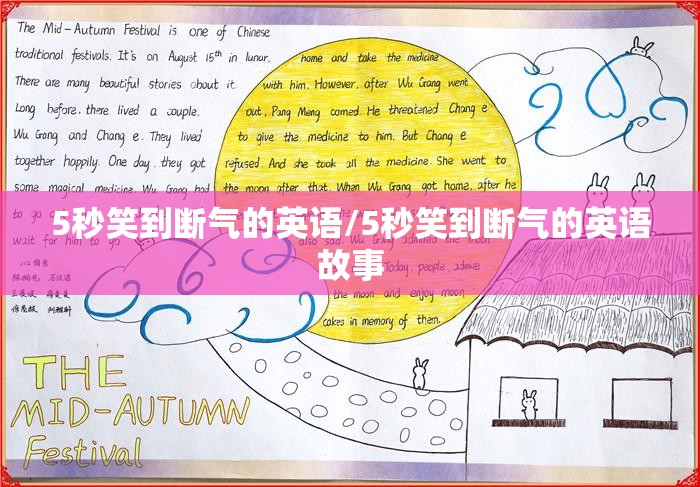 The Mid-Autumn Festival is one of Chinese
traditional festivals. It's on August 15th in lunar.
There are many beautiful stories about it.
Long before, there lived a couple.
Wu Gang and Chang e. They lived
together happily. One day, they got
some magical medicine. Wu Gang had
to go
wait for him to go
home and take the medicine
with him. However, after Wu Gang went
out, Pang Meng comed He threatened Chang e
to give the medicine to him. But Chang e
refused. And she took all the medicine. She went to
the moon after that. When Wu Gang got home, after he
also sad.
Today, people, admire
the moon and enjoy moon
cakes in memory of them.
5秒笑到断气的英语/5秒笑到断气的英语
故事
THE
MID-AUTUMN
Festival